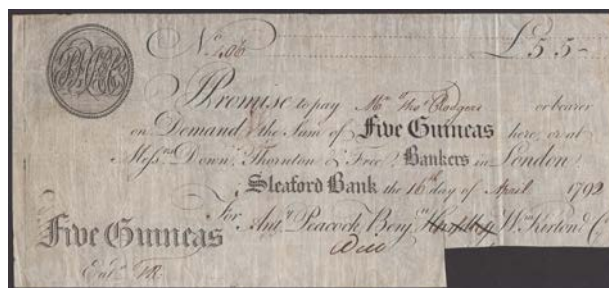 No. 406 £5 5-
Promise to pay Mr. Thos. Rodgers or bearer
on Demand the Sum of Five Guineas here, or at
Messrs. Down, Thornton & Free, Bankers in London,
Sleaford Bank the 16th day of April 1792
For Anty. Peacock, Benjn. Wm. Kirton & Co.
Five Guineas
Entd.